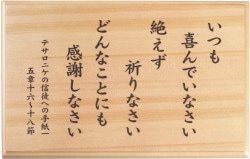 いつも
喜んでいなさい
絶えず
祈りなさい
どんなことにも
感謝しなさい
テサロニケの信徒への手紙一
五章十六～十八節